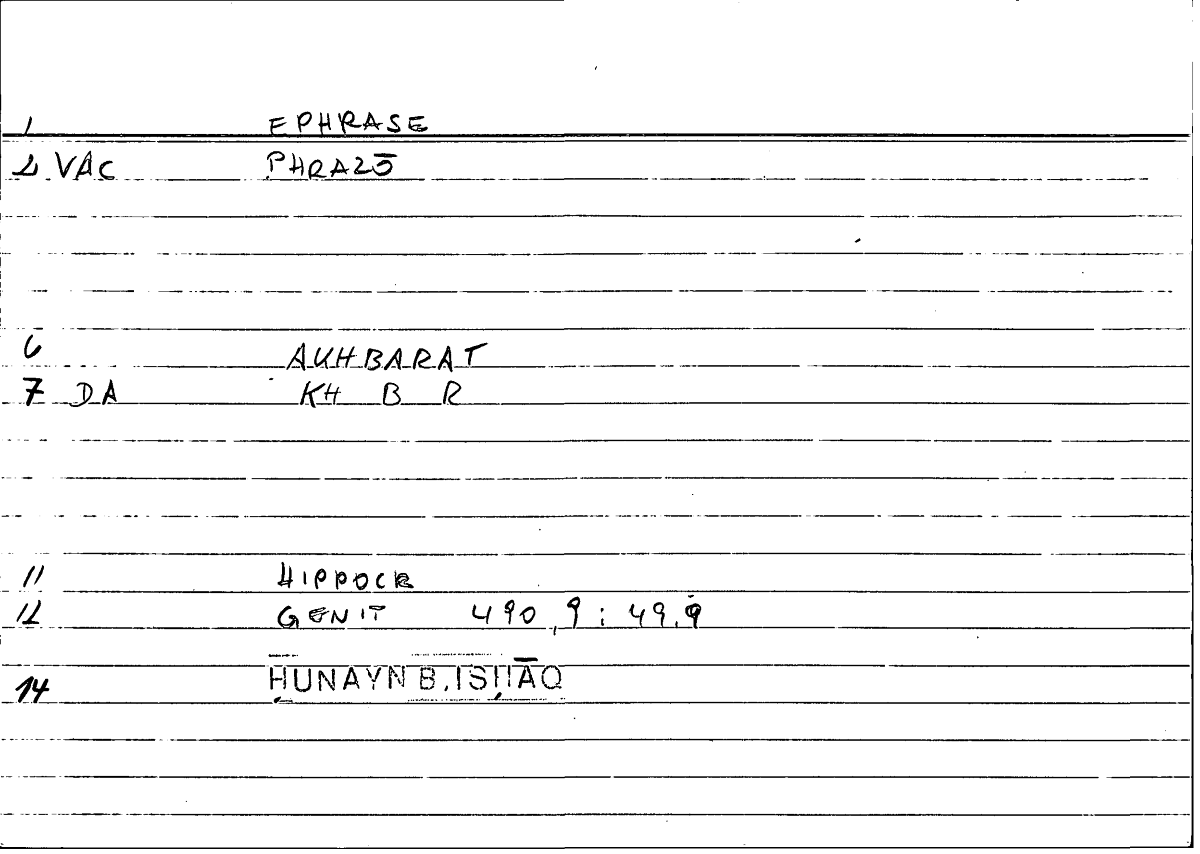 1 EPHRASE
2 VAC PHRAZŌ
6 AKHBARAT
7 DA KH B R
11 HIPPOCR
12 GENIT 490,9 : 49,9
14 ḤUNAYN B. ISḤĀQ